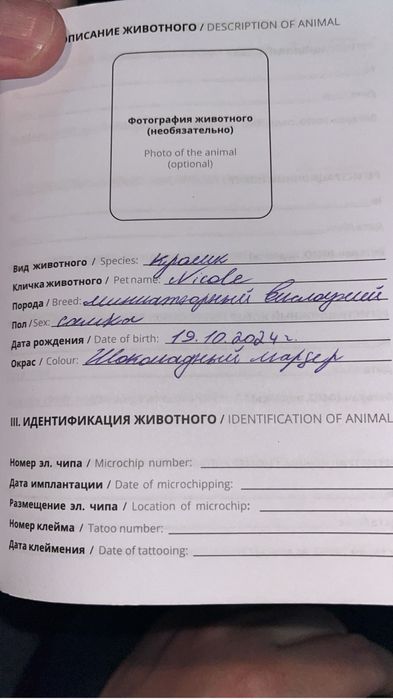 ОПИСАНИЕ ЖИВОТНОГО / DESCRIPTION OF ANIMAL
Фотография животного
(необязательно)
Photo of the animal
(optional)
Вид животного / Species: кролик
Кличка животного / Pet name: Nicole
Порода / Breed: миниатюрный вислоухий
Пол / Sex: самка
Дата рождения / Date of birth: 19.10.2024г.
Окрас / Colour: Шоколадный мардер
III. ИДЕНТИФИКАЦИЯ ЖИВОТНОГО / IDENTIFICATION OF ANIMAL
Номер эл. чипа / Microchip number:
Дата имплантации / Date of microchipping:
Размещение эл. чипа / Location of microchip:
Номер клейма / Tatoo number:
Дата клеймения / Date of tattooing: